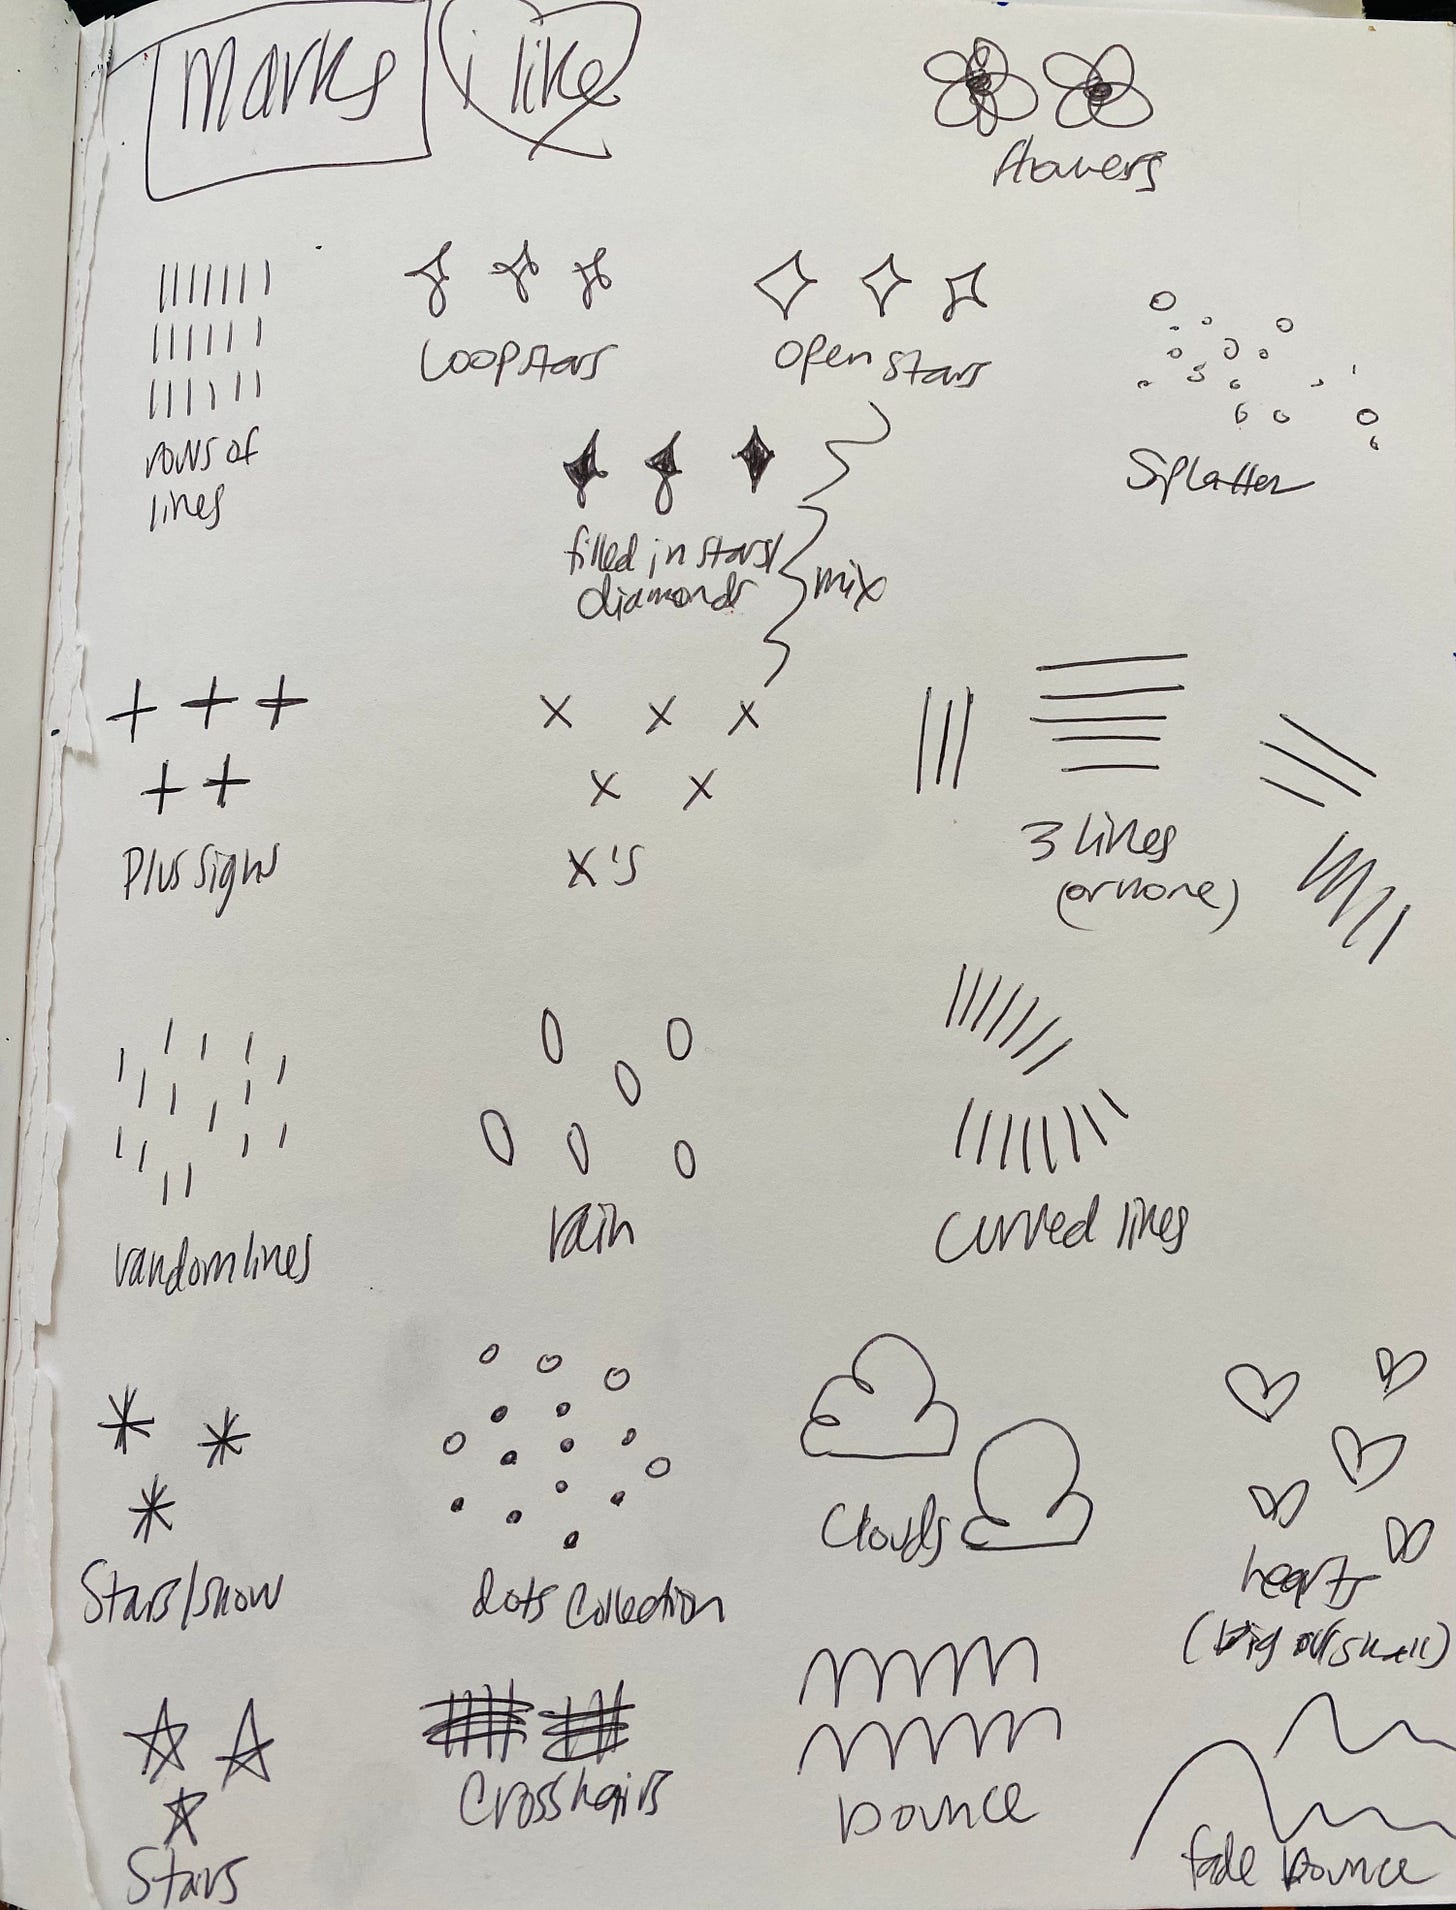 Marks i like
flowers
Loopstars
Open stars
rows of
lines
Splatter
filled in stars/
diamonds
mix
Plus signs
X's
3 lines
(or more)
random lines
rain
curved lines
Stars/snow
dots collection
Clouds
hearts
(big or small)
Stars
Crosshairs
bounce
fade bounce